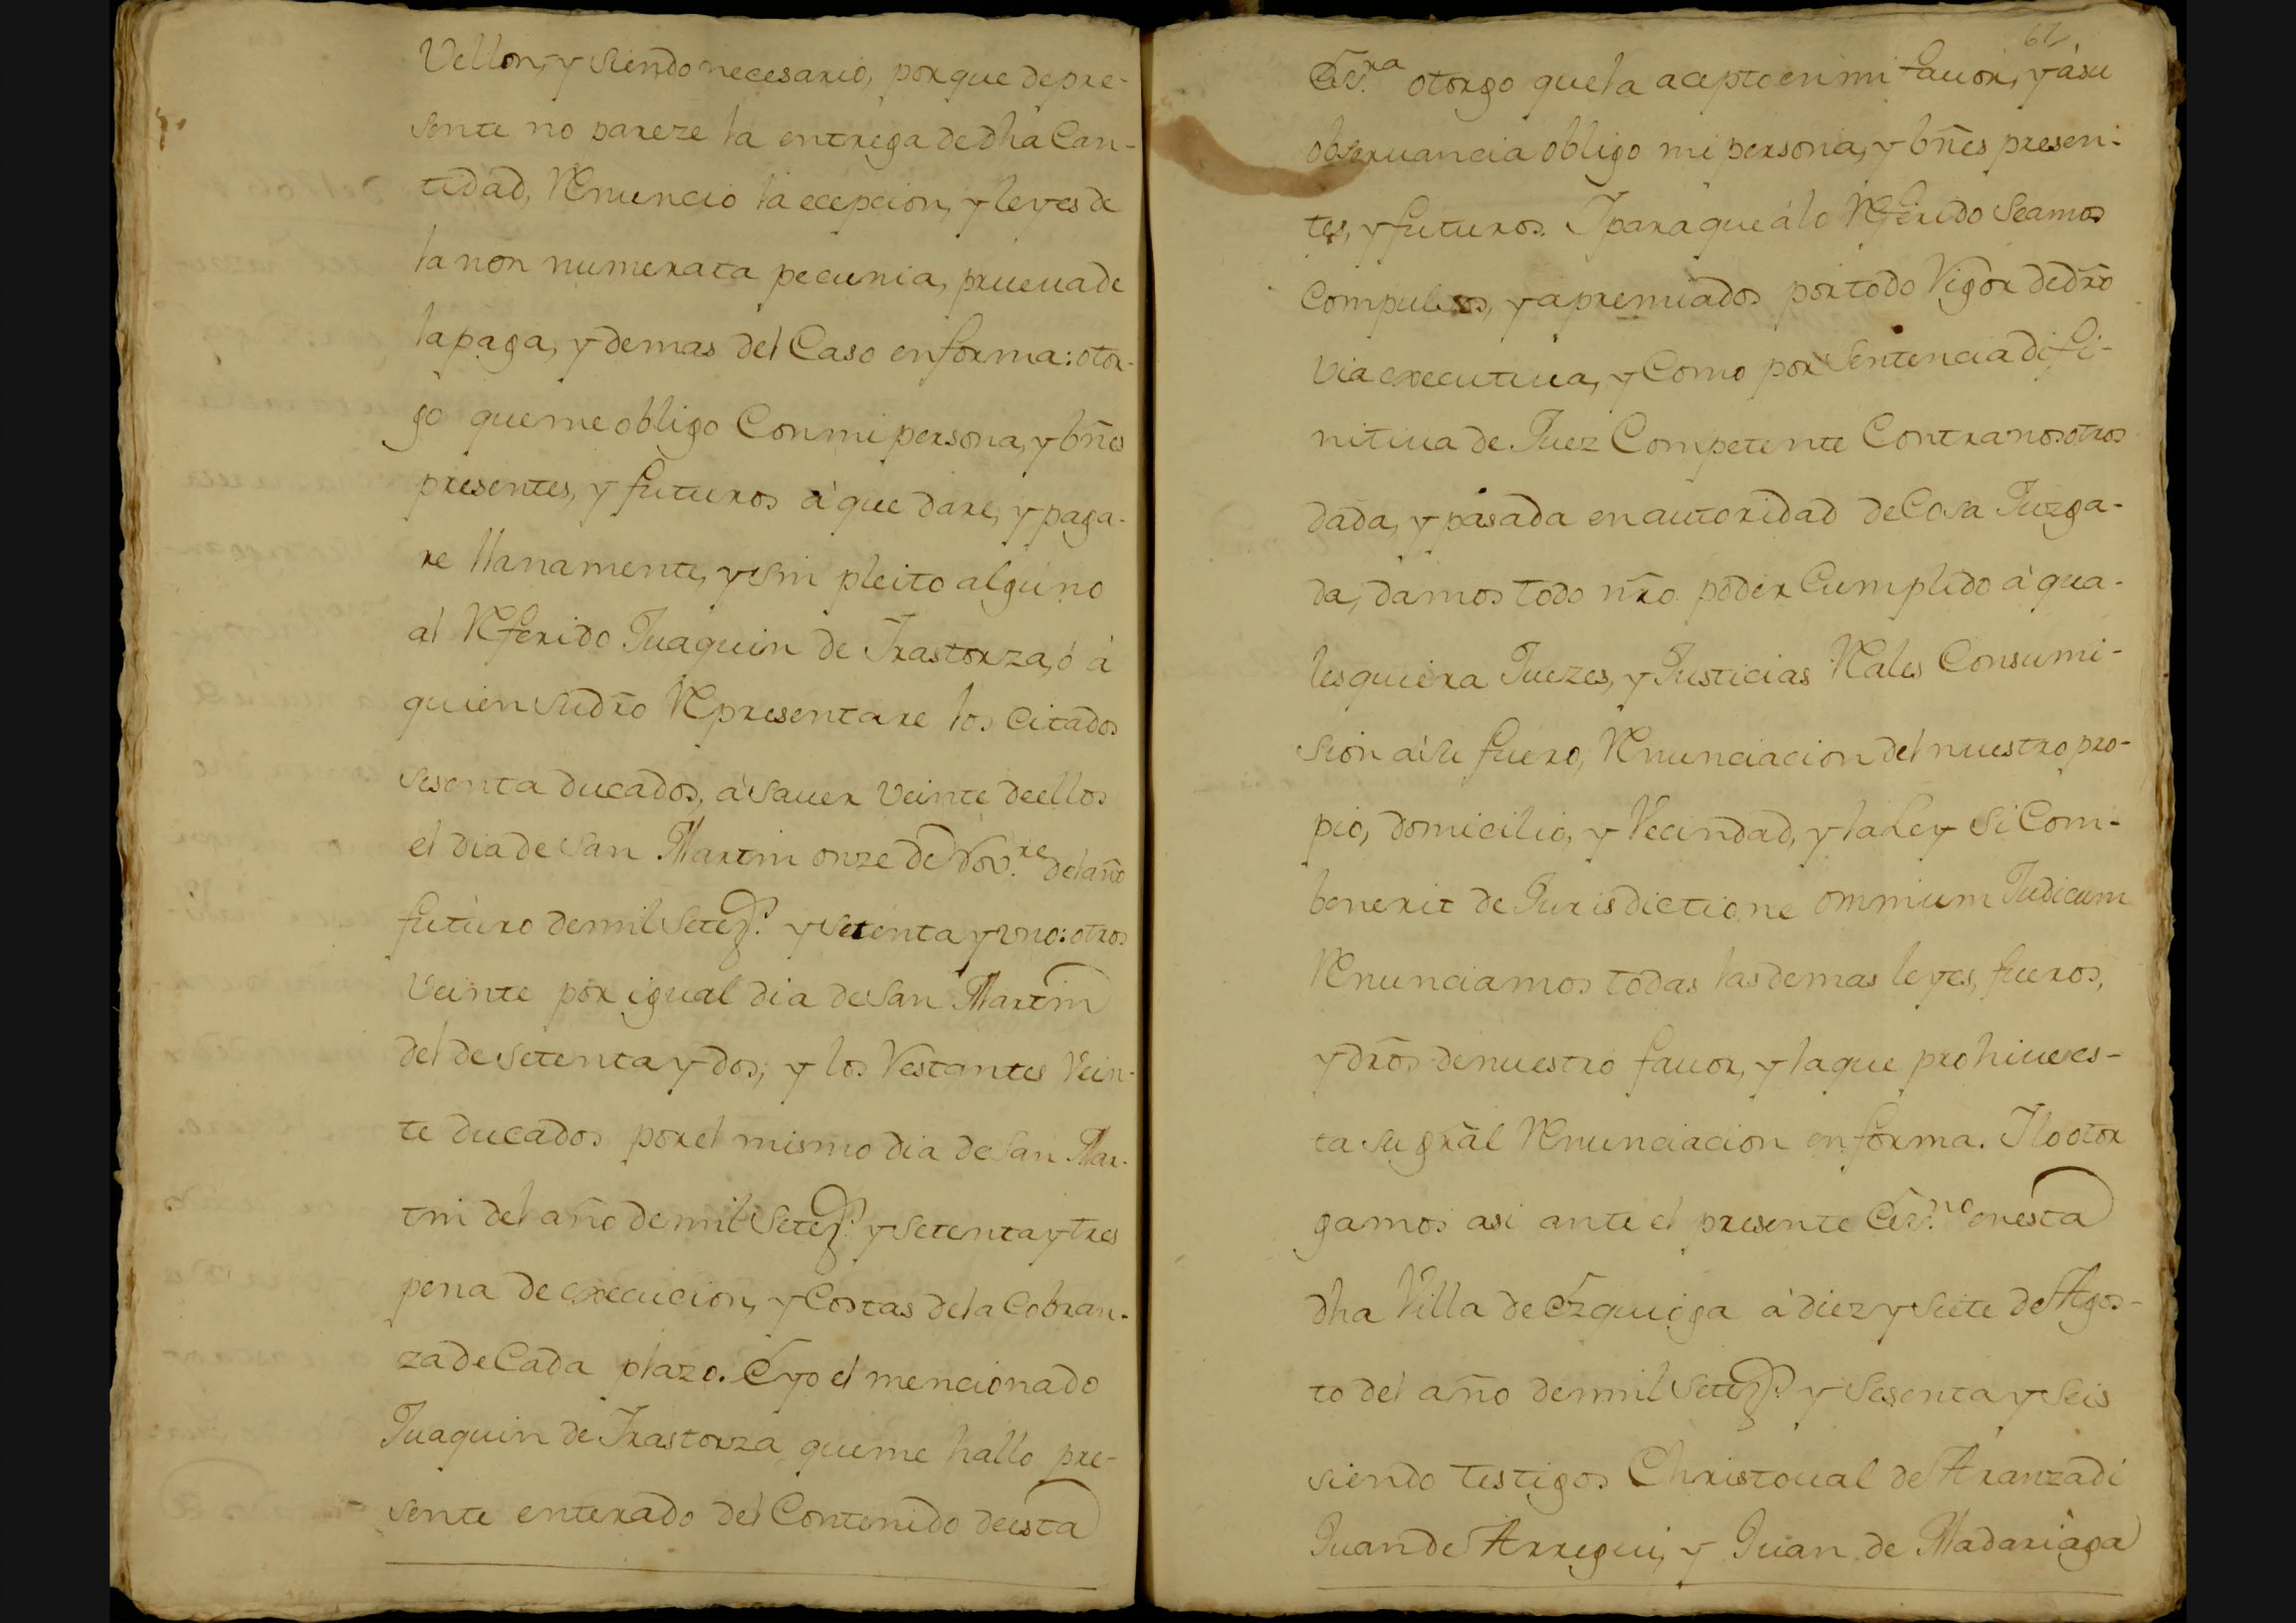 Vellon, y siendo necesario, porque de pre-
sente no pareze la entrega de dha Can-
tidad, Renuncio la ecepcion, y leyes de
la non numerata pecunia, prueua de
la paga, y demas del Caso en forma: otor-
go que me obligo Con mi persona, y bñes
presentes, y futuros à que dare, y paga-
re llanamente, y sin pleito alguno
al Referido Juaquin de Irastorza, ó à
quien su dr̃o Representare los Citados
sesenta ducados, à sauer veinte de ellos
el dia de San Martin onze de Nov.re del año
futuro de mil Sete.s y setenta y vno: otros
Veinte por igual dia de San Martin
del de setenta y dos; y los Restantes Vein-
te ducados por el mismo dia de San Mar-
tin del año de mil Sete.s y setenta y tres
pena de execucion, y Costas de la Cobran-
za de Cada plazo. E yo el mencionado
Juaquin de Irastorza que me hallo pre-
sente enterado del Contenido de esta
61
Es.ra otorgo que la acepto en mi fauor, y à su
obseruancia obligo mi persona, y bñes presen-
tes, y futuros. I para que à lo Referido Seamos
Compulsos, y apremiados por todo Vigor de dr̃o
via executiua, y Como por Sentencia difi-
nitiua de Juez Competente Contra nosotros
dada, y pasada en autoridad de Cosa Juzga-
da, damos todo nr̃o poder Cumplido à qua-
lesquiera Juezes, y Justicias Rales Con sumi-
sion à su fuero, Renunciacion del nuestro pro-
pio, domicilio, y Vecindad, y la Ley Si Com-
benerit de Jurisdictione omnium Judicum
Renunciamos todas las demas leyes, fueros,
y dr̃os de nuestro fauor, y la que prohiue es-
ta su gr̃al Renunciacion en forma. I lo otor
gamos asi ante el presente Es.no en esta
dha Villa de Ezquioga à diez y siete de Agos-
to del año de mil Sete.s y Sesenta y Seis
siendo testigos Christoual de Aranzadi
Juan de Arregui, y Juan de Madariaga